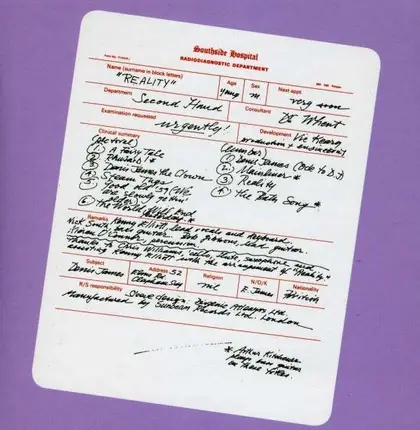 Southside Hospital
RADIODIAGNOSTIC DEPARTMENT
Name (surname in block letters)
"REALITY"
Age
young
Sex
m
Next appt.
very soon
Department
Second Hand
Consultant
Dr
Examination requested
urgently!
Development
Vic Keary
production &
Clinical summary
① A Fairy Tale
② Rhubarb! *
③ Denis James the Clown
④ Steam Tugs
⑤ Good old '59 (We
are slowly gettin'
older)
⑥ The World Will End
① Denis James (Ode to D.J.)
② Mainliner *
③ Reality
④ The Bath Song *
Remarks
Kenny Elliott, lead vocals and keyboard.
Nick South, bass guitar. Bob Gibbons, lead guitar.
Kieran O'Connor, percussion
Thanks to Chris Williams, alto, flute, saxophone and
Kenny Elliott with the arrangement of "Reality"
Subject
Denis James
Address
52
Clapham
Religion
nil
N/O/K
E. James
Nationality
British
R/S responsibility
Sleeve design:
Manufactured by Sunbeam Records Ltd. London
* Arthur Kitchener
plays bass guitar
on these titles.